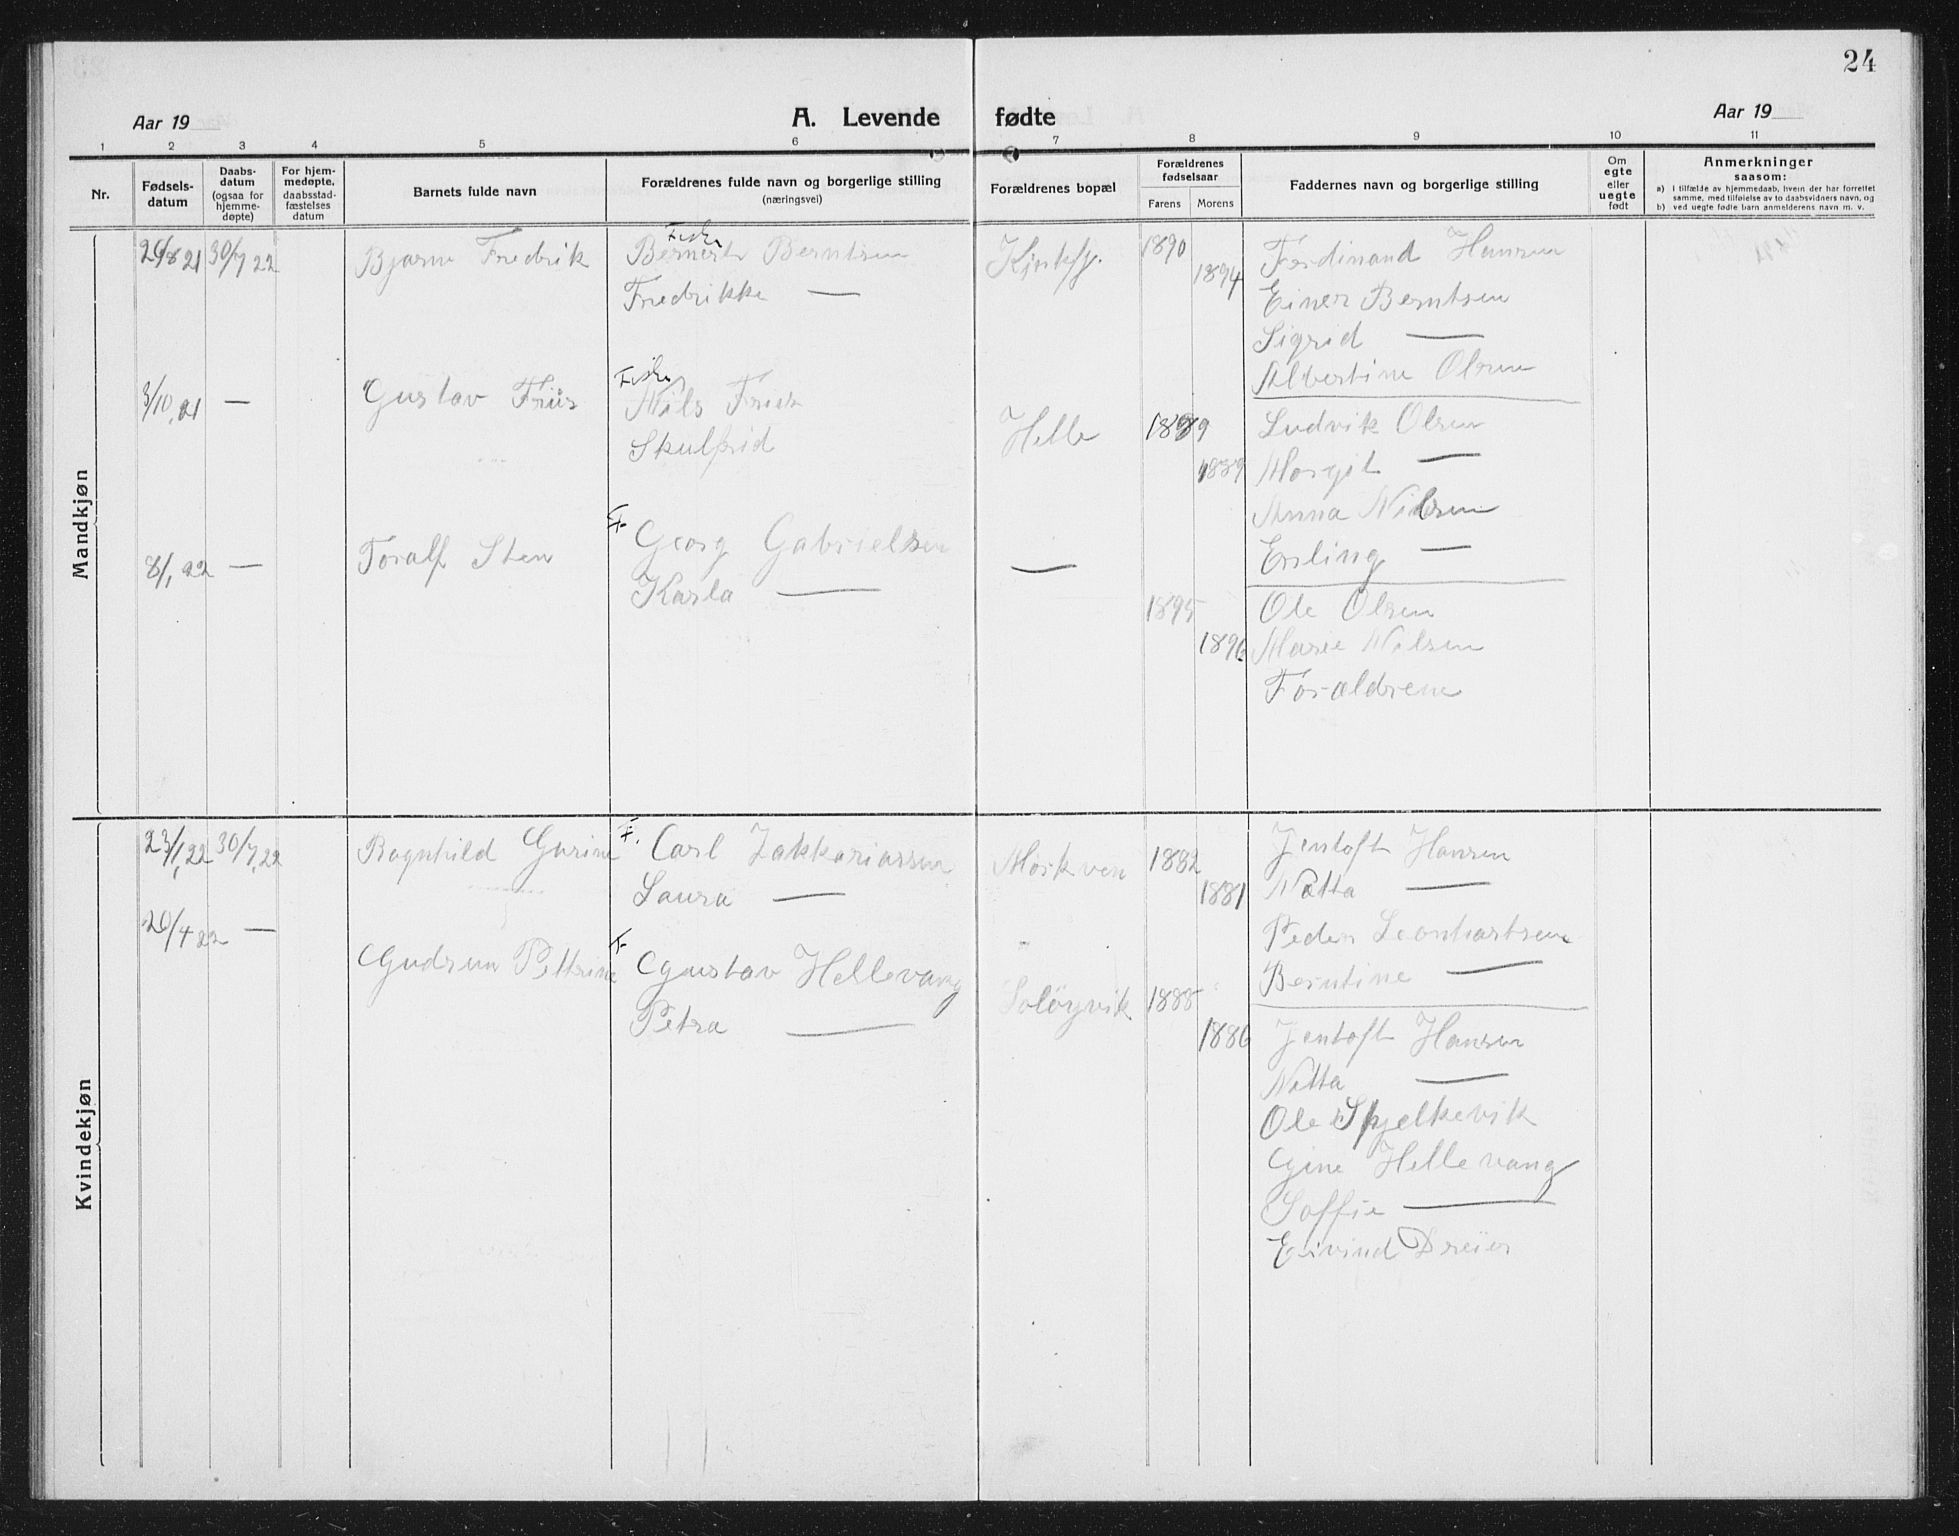 24
Aar 19
A. Levende fødte
Aar 19
1 2 3 4 5 6 7 8 9 10 11
Nr.
Fødsels-
datum
Daabs-
datum
(ogsaa for
hjemme-
døpte)
For hjem-
medøpte,
daabsstad-
fæstelses
datum
Barnets fulde navn
Forældrenes fulde navn og borgerlige stilling
(næringsvei)
Forældrenes bopæl
Forældrenes
fødselsaar
Farens Morens
Faddernes navn og borgerlige stilling
Om
egte
eller
uegte
født
Anmerkninger
saasom:
a) I tilfælde av hjemmedaab, hvem der har forrettet
samme, med tilføielse av to daabsvidners navn, og
b) ved uegte fødte barn anmelderens navn m. v.
Mandkjøn
30/7 22
Bjarne Fredrik
Fisker
Berntsen
Fredrikke —
1890
1894
Ferdinand Hansen
Einer Berntsen
Sigrid —
Albertine Olsen
3/10, 21 —
Gustav Friis
Fisker
Nils Friis
Skulfrid
Helle
1889
1889
Ludvik Olsen
Margit —
Anna Nilsen
Erling —
8/1, 22 —
Toralf Sten
F.
Georg Gabrielsen
Karla —
—
1895
1896
Ole Olsen
Marie Nilsen
Forældrene
Kvindekjøn
23/1, 22 30/7, 22
Ragnhild Gurine
F.
Carl Zakkariassen
Laura —
Morkven
1882
1881
Jentoft Hansen
Netta —
Peder Leonhartsen
Berntine —
20/4 22 —
Gudrun Pettrine
F.
Gustav Hellevang
Petra —
Soløyvik
1885
1886
Jentoft Hansen
Netta —
Ole Spjelkevik
Gine Hellevang
Soffie —
Eivind Dreier